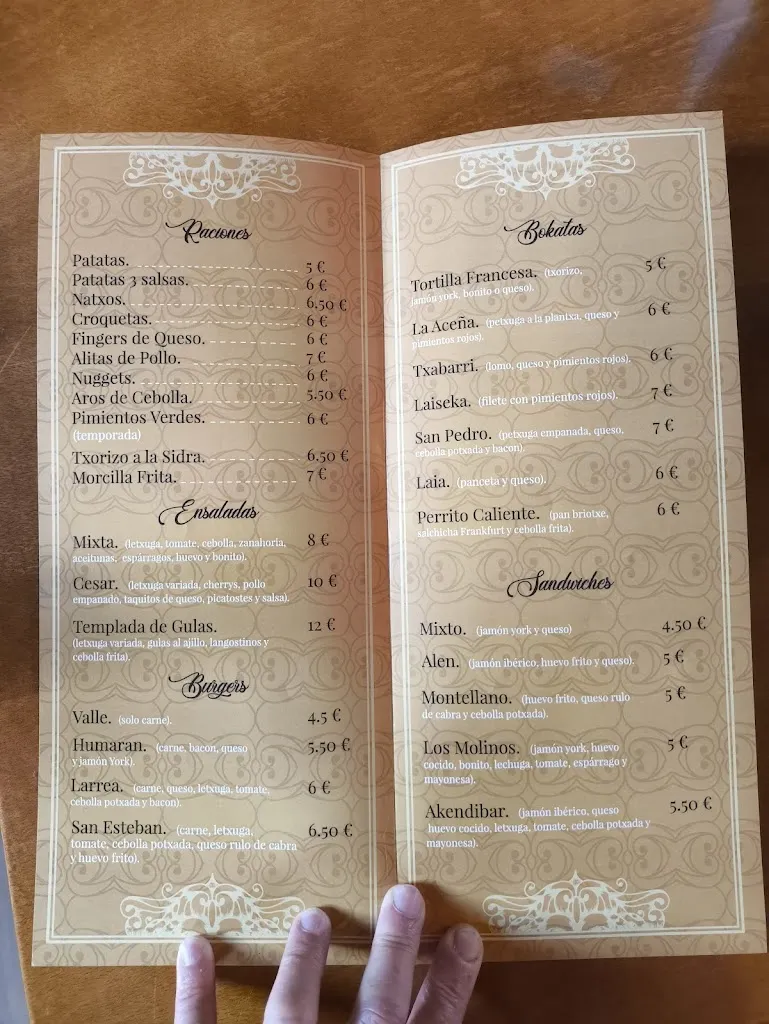 Raciones
Patatas. 5 €
Patatas 3 salsas. 6 €
Natxos. 6,50 €
Croquetas. 6 €
Fingers de Queso. 6 €
Alitas de Pollo. 7 €
Nuggets. 6 €
Aros de Cebolla. 5.50 €
Pimientos Verdes. 6 €
(temporada)
Txorizo a la Sidra. 6,50 €
Morcilla Frita. 7 €
Ensaladas
Mixta. (letxuga, tomate, cebolla, zanahoria, 8 €
aceitunas, espárragos, huevo y bonito).
Cesar. (letxuga variada, cherrys, pollo 10 €
empanado, taquitos de queso, picatostes y salsa).
Templada de Gulas. 12 €
(letxuga variada, gulas al ajillo, langostinos y
cebolla frita).
Burgers
Valle. (solo carne). 4.5 €
Humaran. (carne, bacon, queso 5.50 €
y jamón York).
Larrea. (carne, queso, letxuga, tomate, 6 €
cebolla potxada y bacon).
San Esteban. (carne, letxuga, 6.50 €
tomate, cebolla potxada, queso rulo de cabra
y huevo frito).
Bokatas
Tortilla Francesa. (txorizo, 5 €
jamón york, bonito o queso).
La Aceña. (petxuga a la plantxa, queso y 6 €
pimientos rojos).
Txabarri. (lomo, queso y pimientos rojos). 6 €
Laiseka. (filete con pimientos rojos). 7 €
San Pedro. (petxuga empanada, queso, 7 €
cebolla potxada y bacon)
Laia. (panceta y queso). 6 €
Perrito Caliente. (pan briotxe, 6 €
salchicha Frankfurt y cebolla frita).
Sandwiches
Mixto. (jamón york y queso) 4.50 €
Alen. (jamón ibérico, huevo frito y queso). 5 €
Montellano. (huevo frito, queso rulo 5 €
de cabra y cebolla potxada).
Los Molinos. (jamón york, huevo 5 €
cocido, bonito, lechuga, tomate, espárrago y
mayonesa).
Akendibar. (jamón ibérico, queso 5.50 €
huevo cocido, letxuga, tomate, cebolla potxada y
mayonesa).